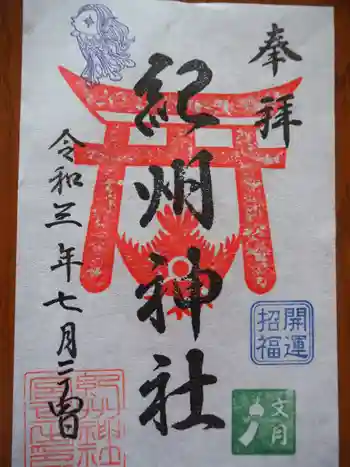 奉拝
紀州神社
令和三年七月二十四日
開運
招福
文月